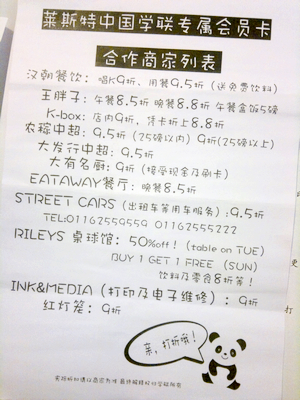 莱斯特中国学联专属会员卡
合作商家列表
汉朝餐饮: 唱K9折, 用餐9.5折 (送免费饮料)
王胖子: 午餐8.5折 晚餐8.8折 午餐盒饭5磅
K-box: 店内9折, 凭卡折上8.8折
农稼中超: 9.5折 (25磅以内) 9折(25磅以上)
大发行中超: 9.5折
大有名厨: 9折 (接受现金及刷卡)
EATAWAY餐厅: 晚餐8.5折
STREET CARS (出租车等用车服务): 9.5折
TEL:01162559559 01165555222
RILEYS 桌球馆: 50%off! (table on TUE)
BUY 1 GET 1 FREE (SUN)
饮料及零食8折等!
INK&MEDIA (打印及电子维修): 9折
红灯笼: 9折
亲, 打折哦!